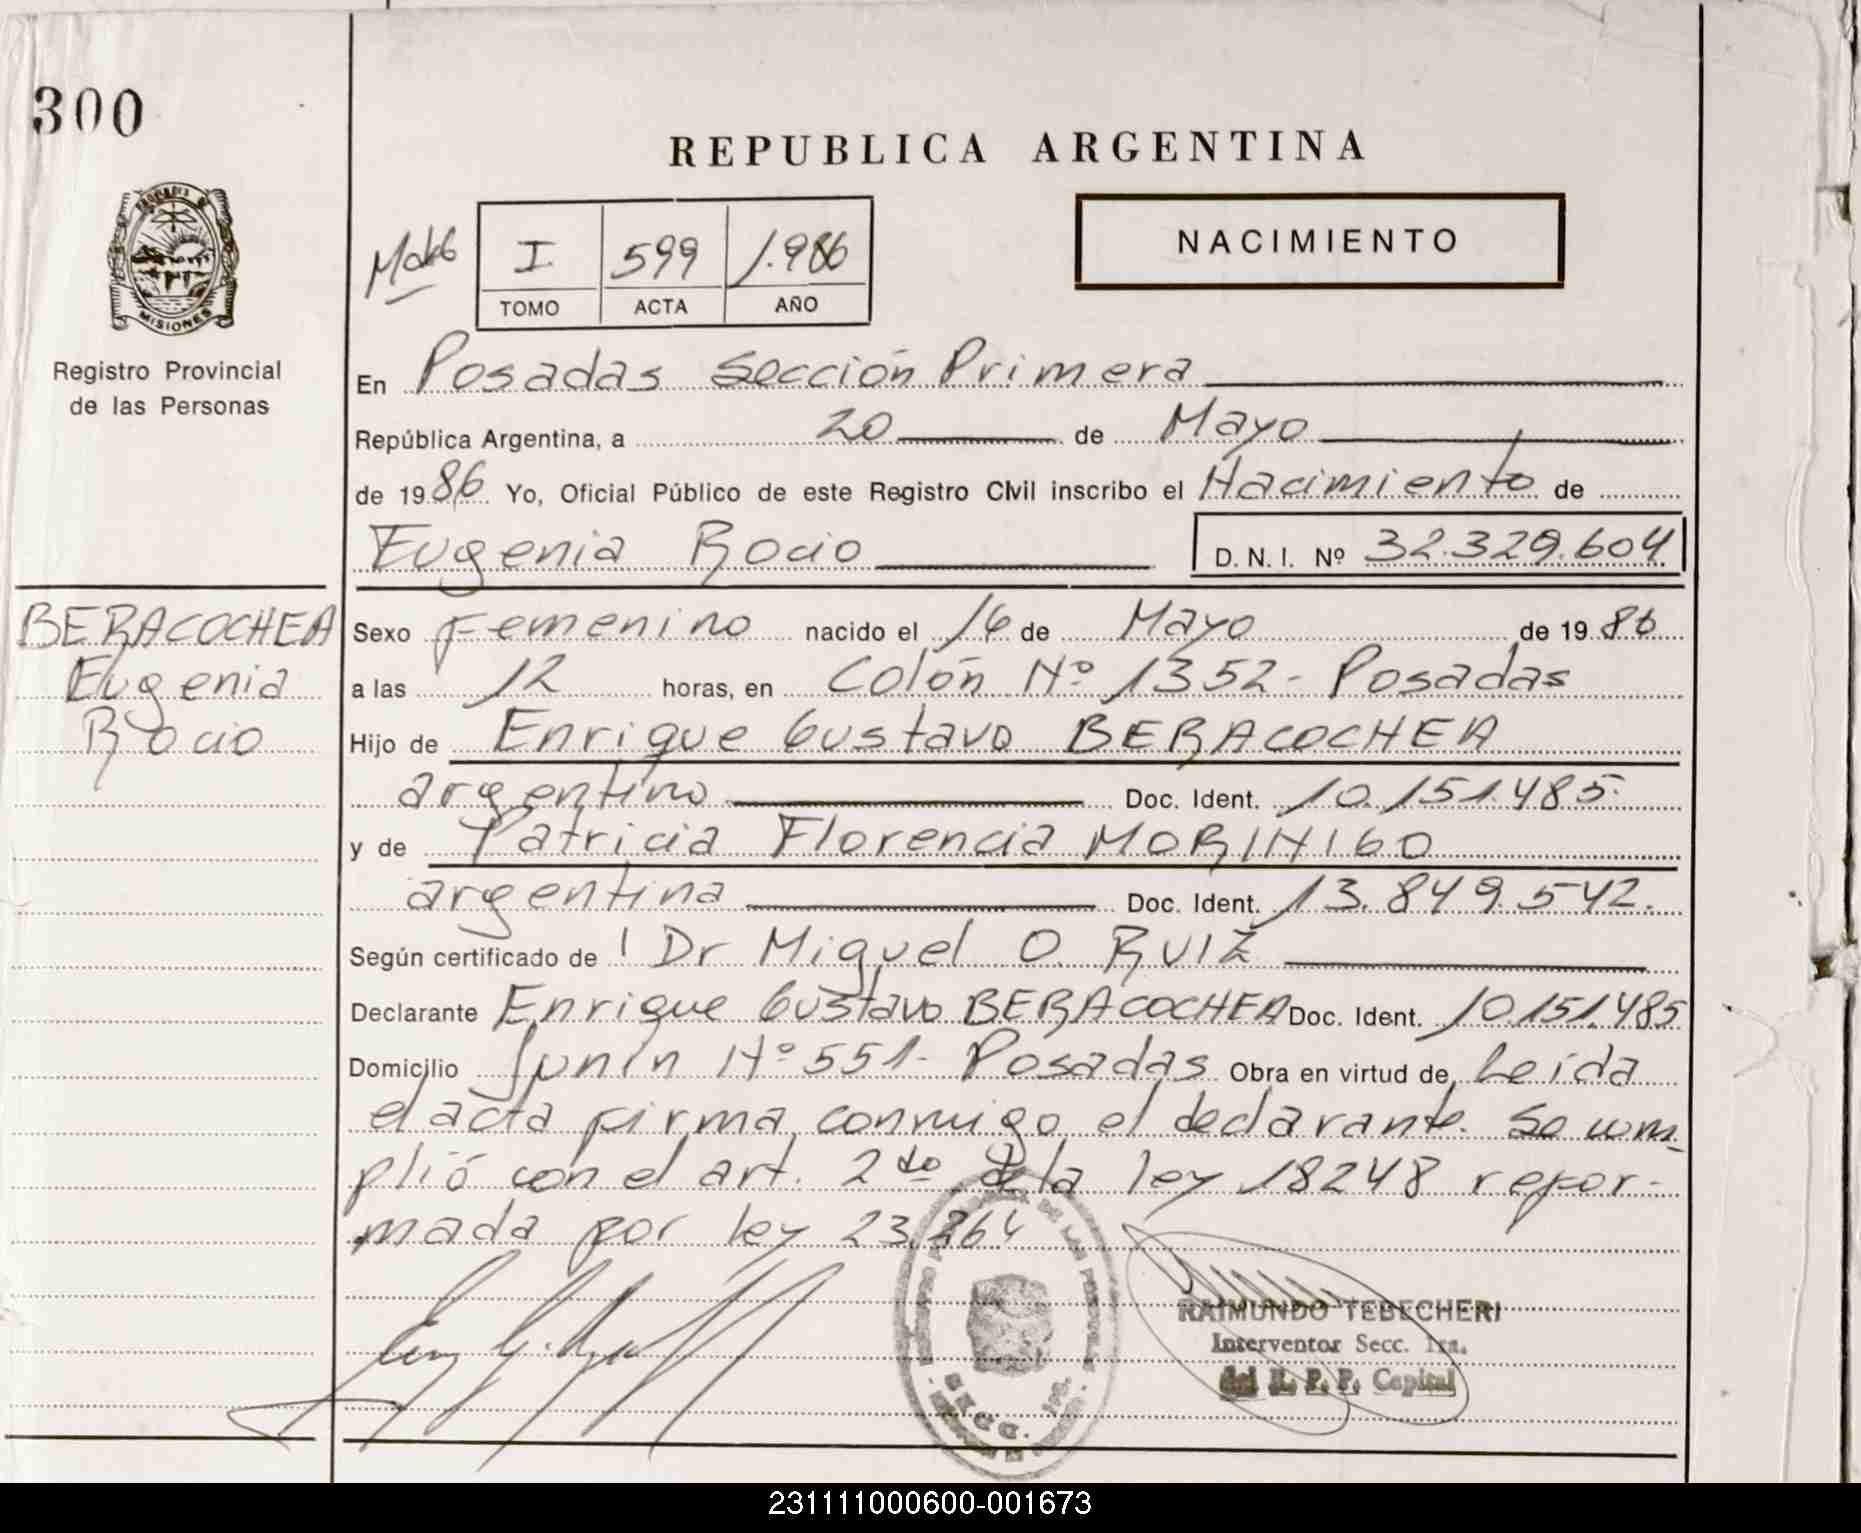 300
REPUBLICA ARGENTINA
NACIMIENTO
I 599 1.986
TOMO ACTA AÑO
MISIONES
Registro Provincial
de las Personas
En Posadas Sección Primera
República Argentina, a 20 de Mayo
de 1986 Yo, Oficial Público de este Registro Civil inscribo el Nacimiento de
Eugenia Rocio D. N. I. Nº 32.329.604
BERACOCHEA
Eugenia
Rocio
Sexo Femenino nacido el 16 de Mayo de 1986
a las 12 horas, en Colón Nº 1352 - Posadas
Hijo de Enrique Gustavo BERACOCHEA
argentino Doc. Ident. 10.151.485
y de Patricia Florencia MORINIGO
argentina Doc. Ident. 13.849.542.
Según certificado de Dr Miguel O. RUIZ
Declarante Enrique Gustavo BERACOCHEA Doc. Ident. 10.151.485
Domicilio Junín Nº 551 - Posadas Obra en virtud de Leída
el acta firma conmigo el declarante. Se cum-
plió con el art. 2do de la ley 18248 refor-
mada por ley 23.264
RAIMUNDO TEBECHERI
Interventor Secc. 1ra.
del R. P. P. Capital
SECC. 1ra.
231111000600-001673